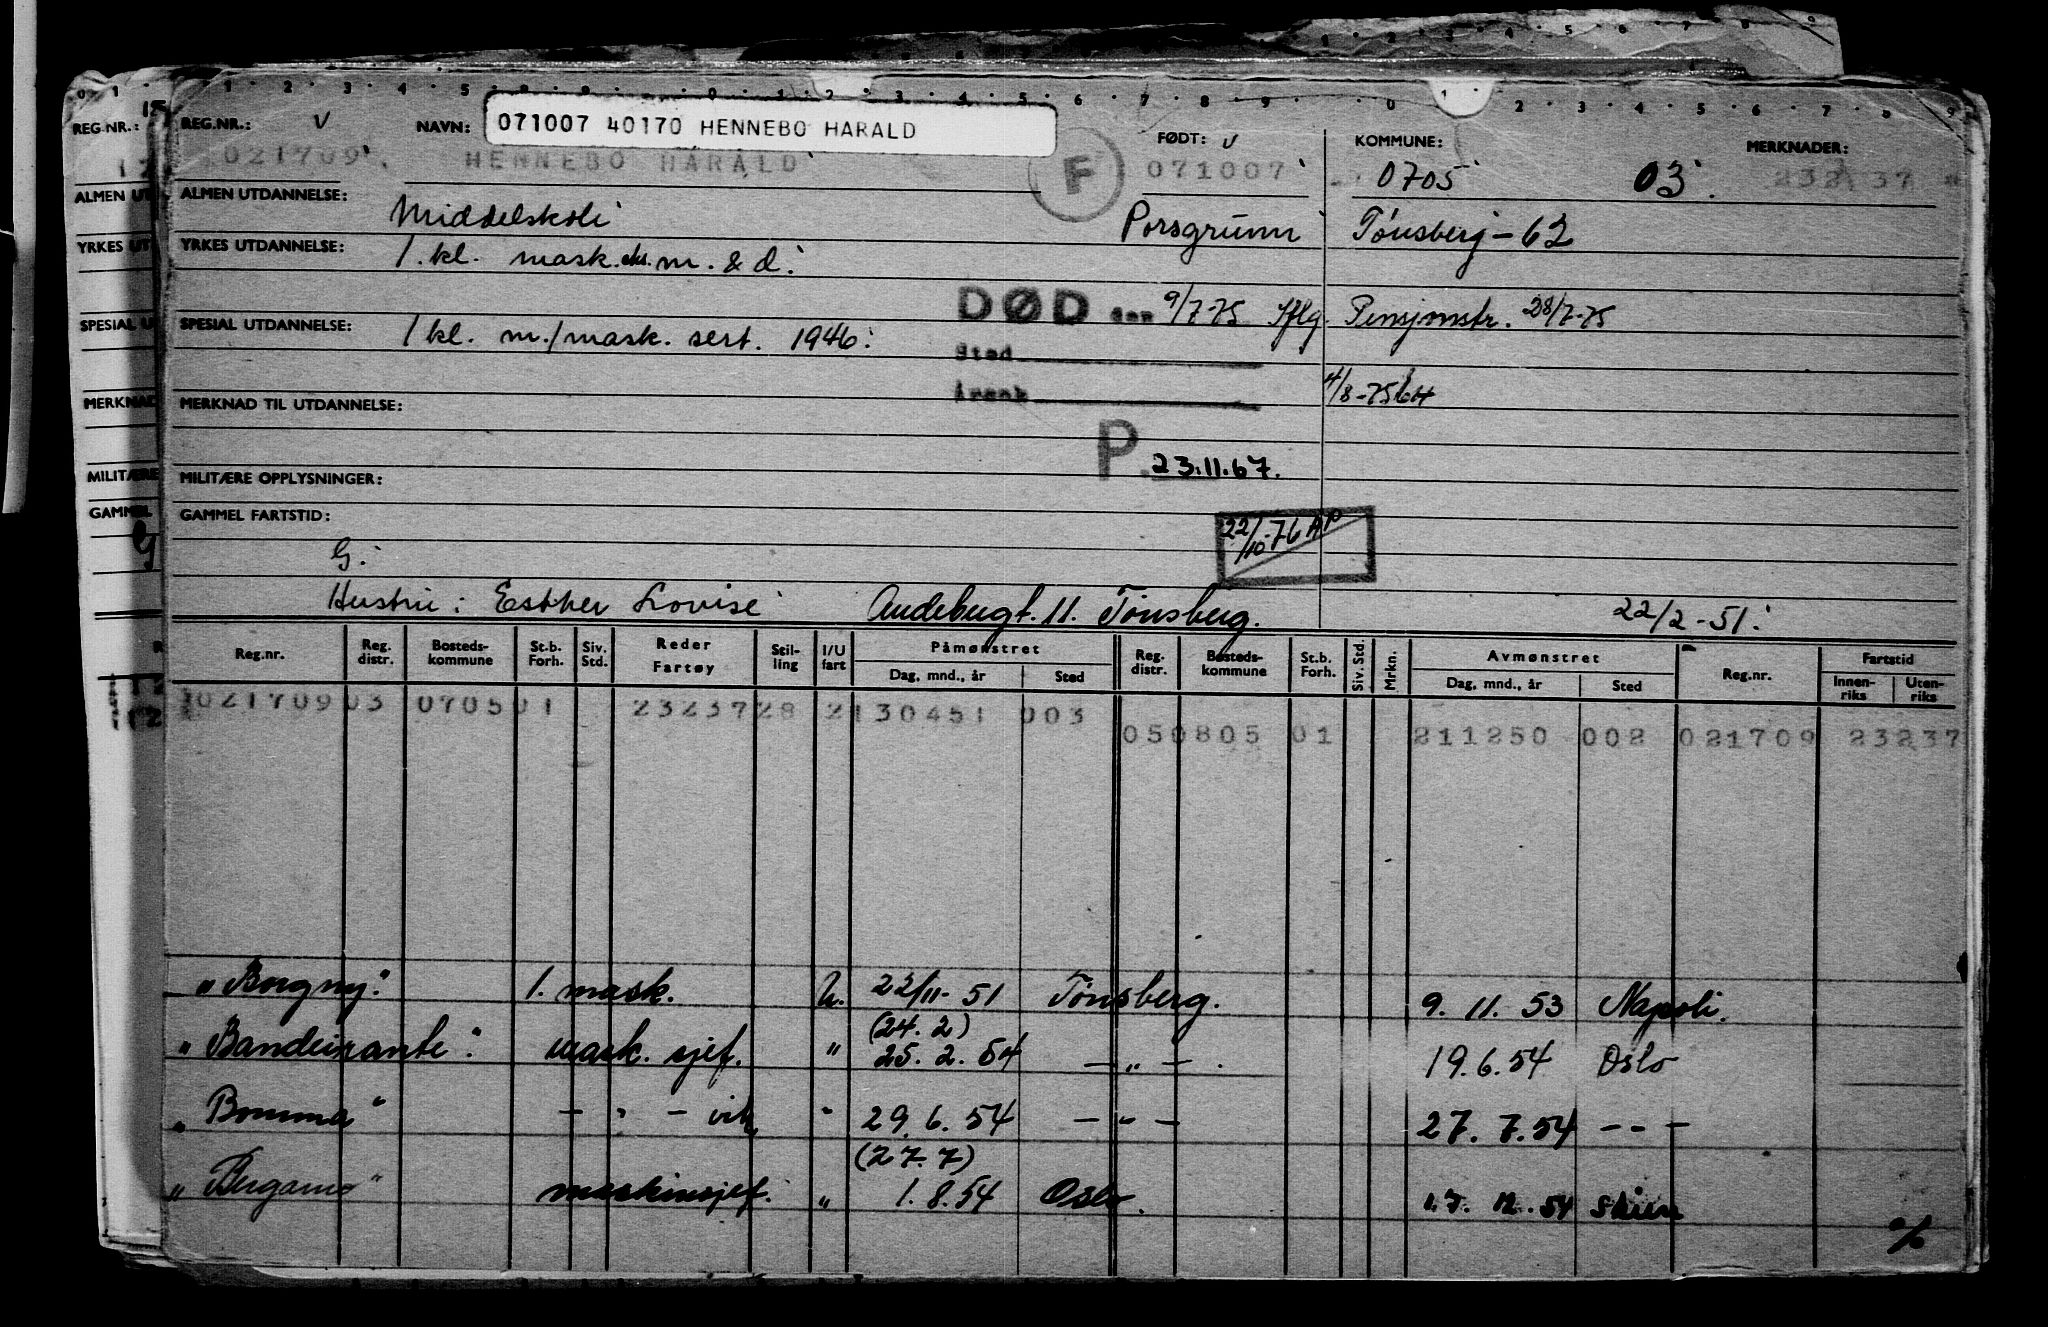 REG.NR.: V NAVN: 071007 40170 HENNEBO HARALD FØDT: V KOMMUNE: MERKNADER:
021709 HENNEBO HARALD F 071007 0705 03 23237
ALMEN UTDANNELSE: Middelskole Porsgrunn Tønsberg - 62
YRKES UTDANNELSE: 1. kl. mask. eks. m. & d.
DØD den 9/7-75 Iflg. Pensjonstr. 28/7-75
SPESIAL UTDANNELSE: 1 kl. m./mask. sert. 1946.
Sted
Årsak 4/8-75
MERKNAD TIL UTDANNELSE:
P. 23.11.67.
MILITÆRE OPPLYSNINGER:
GAMMEL FARTSTID:
22/10-76 AP
G.
Hustru: Esther Lovise Andebugt. 11. Tønsberg. 22/2-51.
Reg.nr. Reg. distr. Bosteds-kommune St.b. Forh. Siv. Std. Reder Fartøy Stil-ling I/U fart Påmønstret Dag, mnd., år Sted Reg. distr. Bosteds-kommune St.b. Forh. Siv. Std. Mrkn. Avmønstret Dag, mnd., år Sted Reg.nr. Fartstid Innen-riks Uten-riks
021709 03 0705 01 23237 28 2 130451 003
050805 01 211250 002 021709 23237
"Borgny." 1. mask. U. 22/11-51 Tønsberg. 9. 11. 53 Napoli.
(24. 2)
"Bandeirante". mask. sjef. " 25. 2. 54 — " — . 19. 6. 54 Oslo
"Bomma" — " — vik " 29. 6. 54 — " — 27. 7. 54 — " —
(27. 7)
"Bergamo" maskinsjef. " 1. 8. 54 Oslo. 12. 54 Skien
%